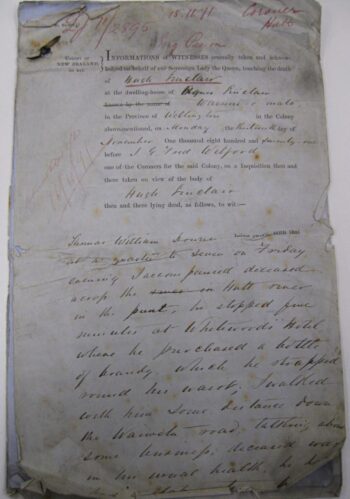 15.11.71
Coroner
Hutt
COLONY OF NEW ZEALAND
TO WIT.
INFORMATIONS OF WITNESSES severally taken and acknow-
ledged on behalf of our Sovereign Lady the Queen, touching the death
of Hugh Sinclair
at the dwelling-house of Sinclair
known by the name of
in the Province of Wellington in the Colony
abovementioned, on Monday the thirteenth day of
November One thousand eight hundred and seventy one
before
one of the Coroners for the said Colony, on a Inquisition then and
there taken on view of the body of
Hugh Sinclair
then and there lying dead, as follows, to wit:—
William
at a quarter to seven on Friday
evening I accompanied deceased
across the Hutt river
in the punt, he stopped five
minutes at Whitewood's Hotel
where he purchased a bottle
of brandy which he strapped
round his waist. I walked
with him some distance down
the road talking about
some business, deceased was
in his usual health, he